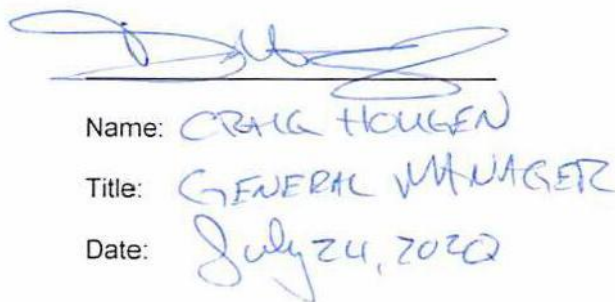 Name: CRAIG HOUGEN
Title: GENERAL MANAGER
Date: July 24, 2020